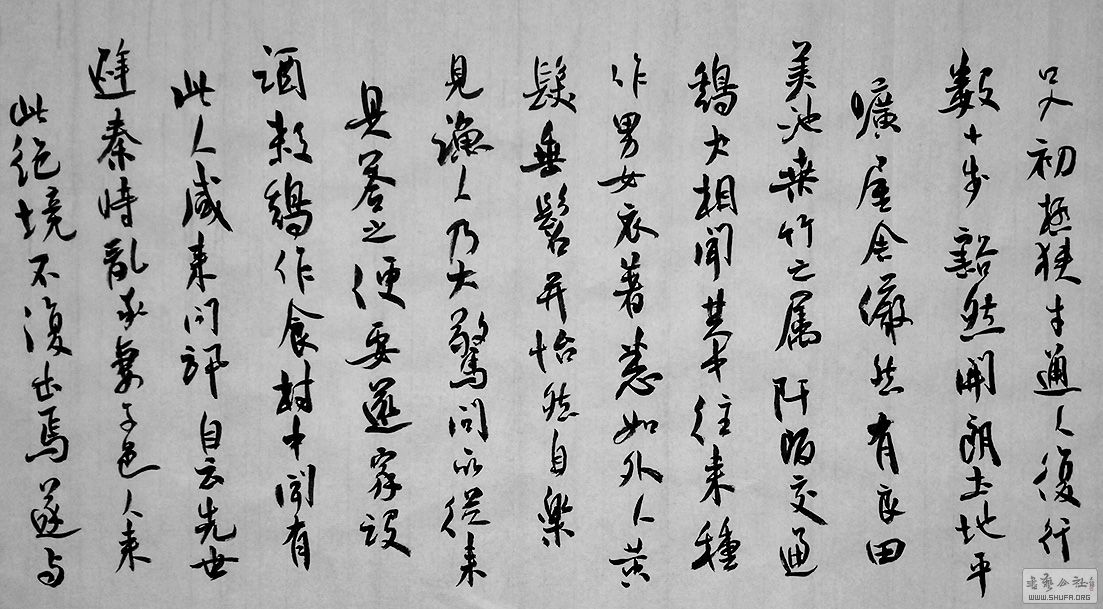 口入初極狹才通人復行
数十步豁然開朗土地平
曠屋舍儼然有良田
美池桑竹之属阡陌交通
鷄犬相聞其中往来種
作男女衣著悉如外人黄
髮垂髫并怡然自樂
見漁人乃大驚問所從来
具答之便要還家設
酒殺鷄作食村中聞有
此人咸来問訊自云先世
避秦時亂率妻子邑人来
此絶境不復出焉遂与
書藝公社
WWW.SHUFA.ORG